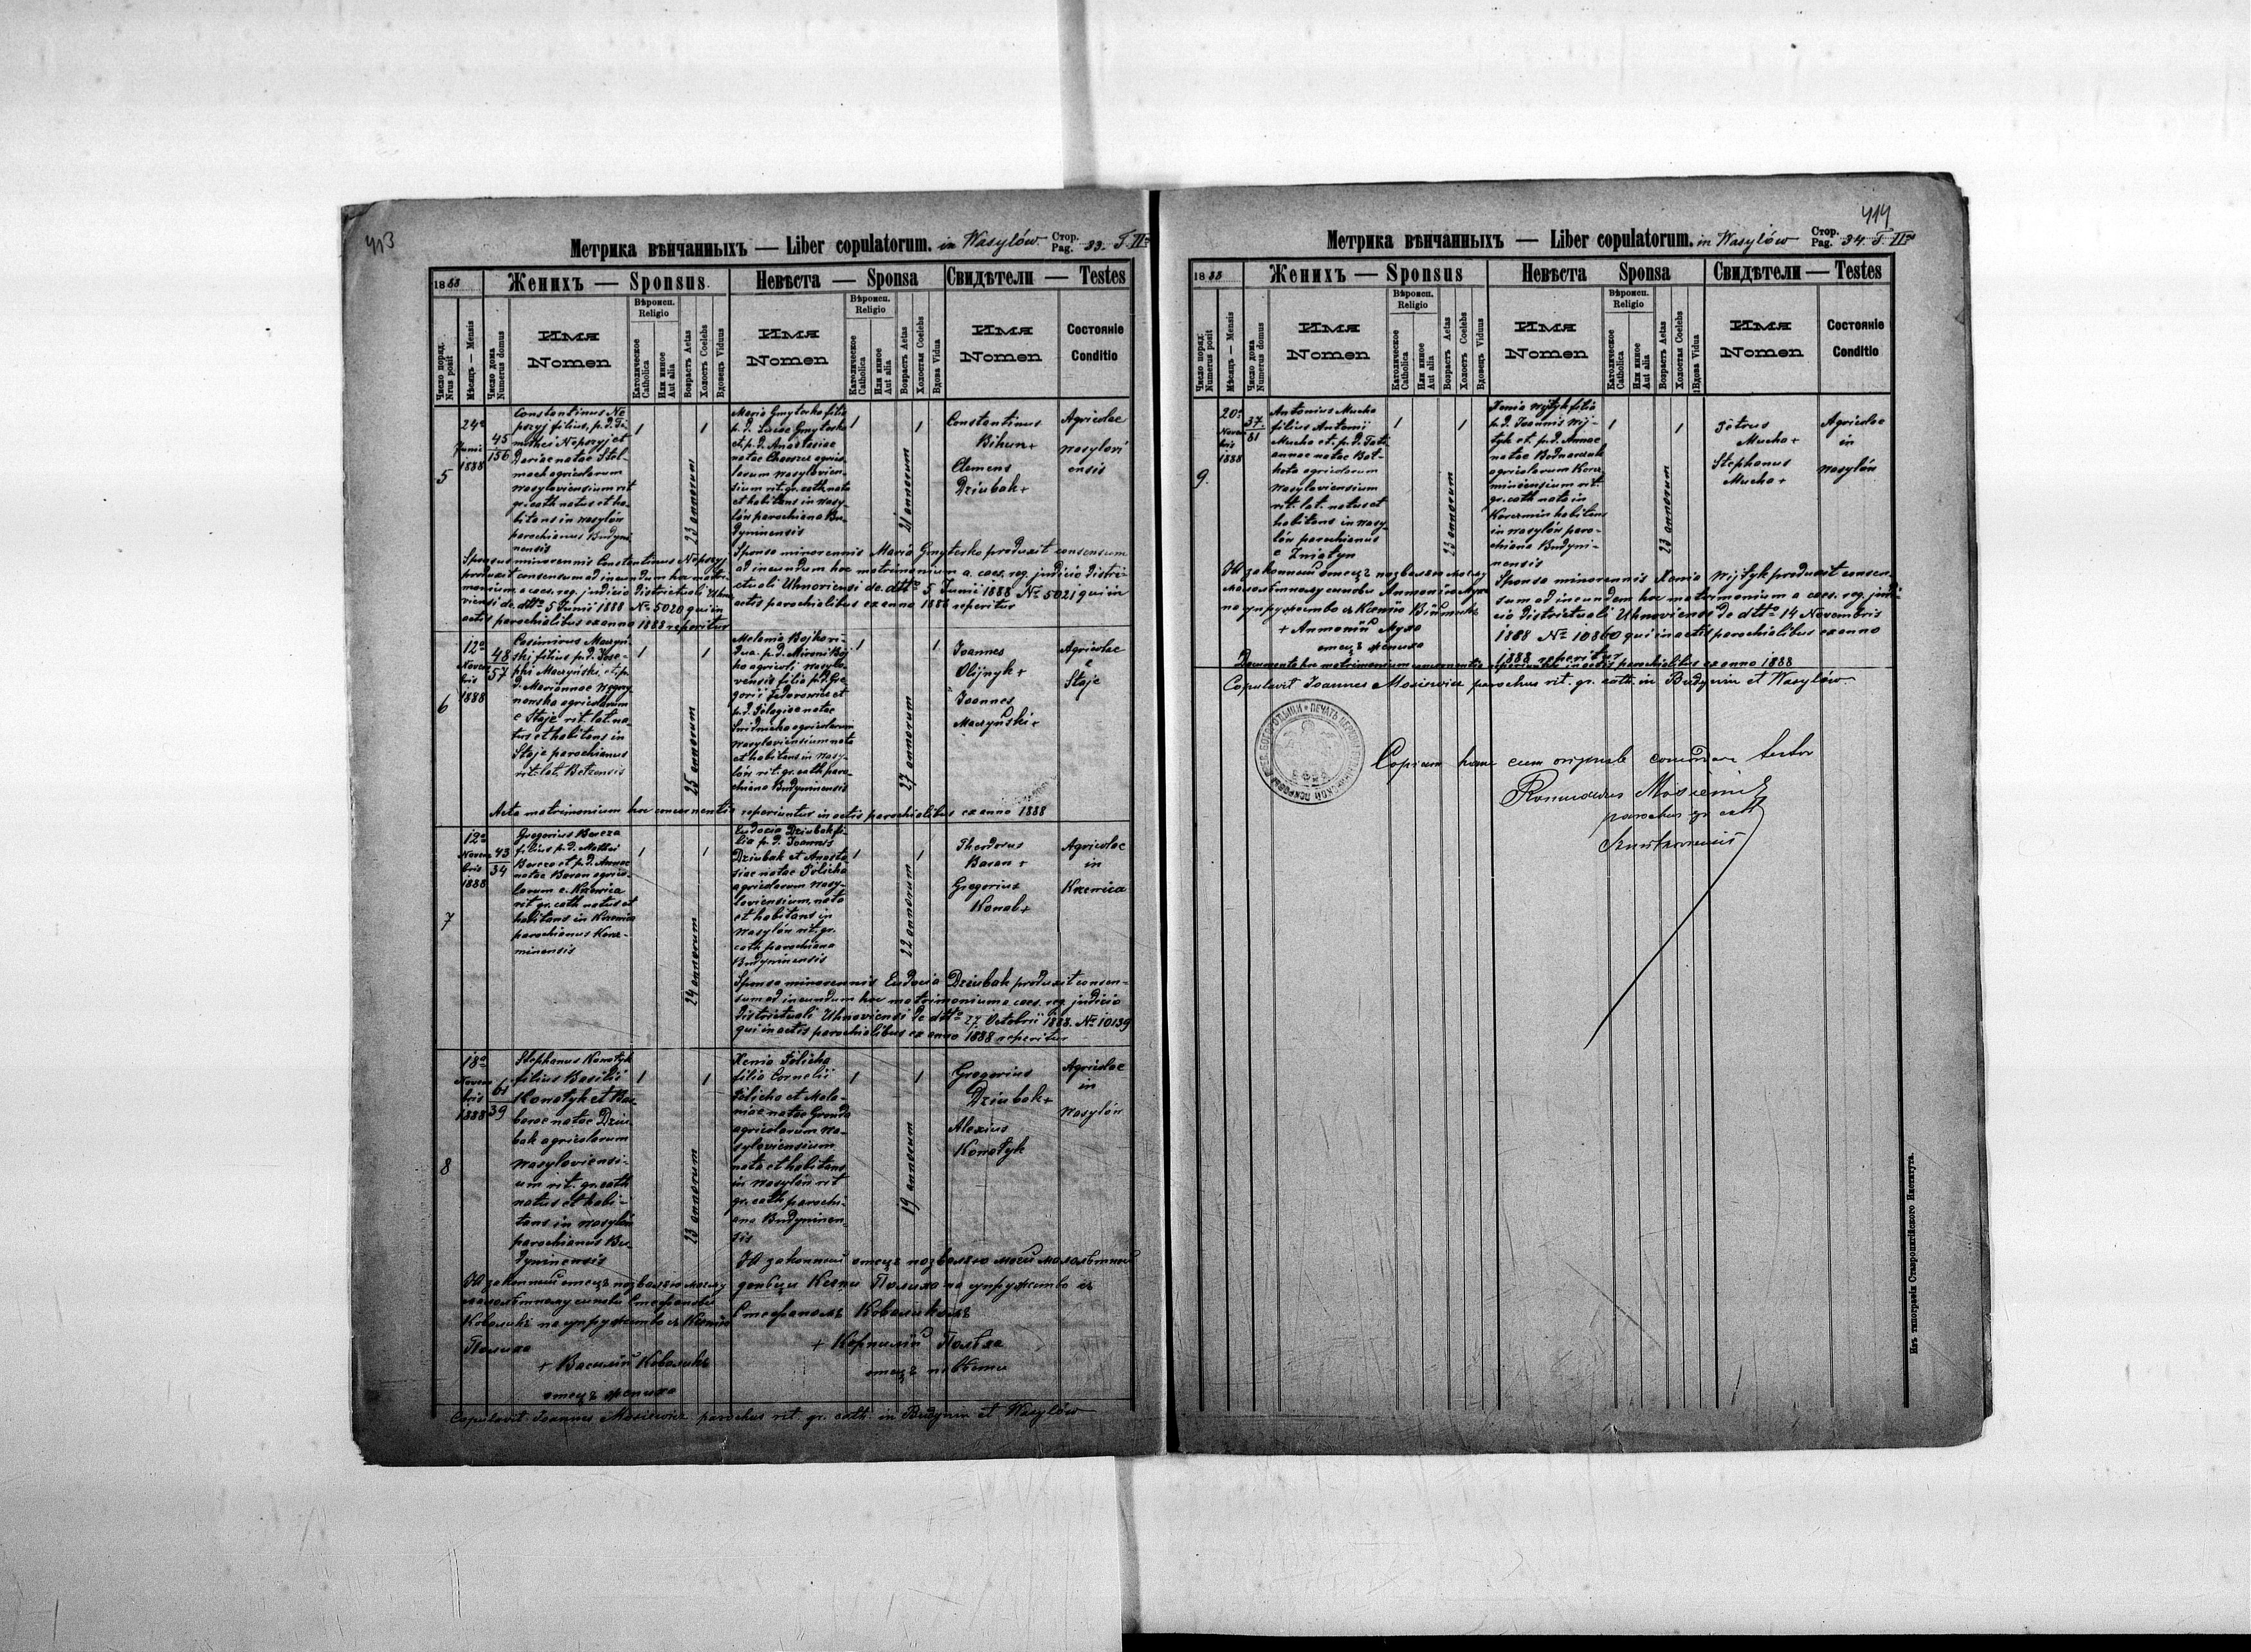 413
Метрика вѣнчанныхъ — Liber copulatorum. in Wasylów Стор. Pag. 33. T. II
1888
Женихъ — Sponsus.
Невѣста — Sponsa
Свидѣтели — Testes
Число поряд. Nrus posit
Мѣсяцъ — Mensis
Число дома Numerus domus
Имя Nomen
Вѣроисп. Religio
Католическое Catholica
Или иное Aut alia
Возрастъ Aetas
Холостъ Coelebs
Вдовецъ Viduus
Имя Nomen
Вѣроисп. Religio
Католическое Catholica
Или иное Aut alia
Возрастъ Aetas
Холостая Coelebs
Вдова Vidua
Имя Nomen
Состояніе Conditio
5
24a
Junii
1888
45
156
Constantinus Ne
poryj filius p. d. Ti
mothei Neporyj et
Dariae natae Stel-
mach agricolarum
Wasyloviensium rit
gr. cath natus et ha-
bitans in Wasylów
parochianus Budyni
nensis
1
23 annorum
1
Maria Gmyterko filia
p. d. Lucae Gmyterko
et p. d. Anastasiae
natae
agrico-
larum Wasylovien-
sium rit. gr. cath nata
et habitans in Wasy-
lów parochiana Bu-
dyninensis
1
21 annorum
1
Constantinus
Bihun +
Clemens
Dziubak +
Agricolae
Wasylovi
ensis
Sponsus minorennis Constantinus Neporyj
produxit consensum ad ineundum hoc matri-
monium a caes. reg. judicio districtuali Uhno
viensi de dtto 5 Junii 1888 No 5020 qui in
actis parochialibus ex anno 1888 reperitur
Sponsa minorennis Maria Gmyterko produxit consensum
ad ineundum hoc matrimonium a. caes. reg. judicio distri-
ctuali Uhnoviensi de dtto 5 Junii 1888 No 5021 qui in
actis parochialibus ex anno 1888 reperitur
6
12a
Novem
bris
1888
48
57
Casimirus Maczyń
ski filius p. d. Jose-
phi Maczyński et p.
d. Mariannae
agricolarum
e Staje rit. lat na-
tus et habitans in
Staje parochianus
rit. lat. Betzensis
1
25 annorum
1
Melania Bojko vi-
dua p. d. Mironi Boj
ko agricoli Wasylo-
vensis filia p. d. Gre
gorii Fedorowicz et
p. d. Pelagiae natae
agricolarum
Wasyloviensium nata
et habitans in Wasy-
lów rit. gr. cath paro-
chiana Budyninensis
1
27 annorum
1
Joannes
Olijnyk +
Joannes
Maczyński +
Agricolae
e
Staje
Acta matrimonium hoc concernentia reperiuntur in actis parochialibus ex anno 1888
7
12a
Novem
bris
1888
43
34
Gregorius Bereza
filius p. d. Mathei
Bereza et p. d. Annae
natae Baran agrico-
larum e Krzewica
rit gr. cath natus et
habitans in Krzewica
parochianus Korcz-
minensis
1
24 annorum
1
Eudocia Dziubak fi-
lia p. d. Joannis
Dziubak et Anasta
siae natae Policha
agricolarum Wasy-
loviensium, nata
et habitans in
Wasylów rit. gr.
cath parochiana
Budyninensis
1
22 annorum
1
Theodorus
Baran +
Gregorius
Kowal +
Agricolae
in
Krzewica
Sponsa minorennis Eudocia Dziubak produxit consen-
sum ad ineundum hoc matrimonium a caes. reg. judicio
districtuali Uhnoviensi de dtto 27 Octobris 1888. No 10139
qui in actis parochialibus ex anno 1888 reperitur
8
18a
Novem
bris
1888
61
39
Stephanus Kowalyk
filius Basilii
Kowalyk et Bar
barae natae Dziu
bak agricolarum
Wasyloviensi-
um rit. gr. cath
natus et habi-
tans in Wasylów
parochianus Bu-
dyninensis
1
23 annorum
1
Xenia Policha
filia Cornelii
Policha et Mela-
niae natae Gronda
agricolarum Wa-
syloviensium
nata et habitans
in Wasylów rit
gr. cath parochi-
ana Budyninen-
sis
1
19 annorum
1
Gregorius
Dziubak +
Alexius
Kowalyk
Agricolae
in
Wasylów
Я законный отецъ позваляю моему
малолѣтному синови Стефанови
Ковалыкъ на супружество съ Ксенію
Полиха
+ Василій Ковалыкъ
отецъ жениха
Я законный отецъ позваляю моей малолѣтной
доньци Ксени Полиха на супружество съ
Стефаномъ Ковалыкомъ
+ Корнилій Полѣха
отецъ невѣсты
Copulavit Joannes Mosiewicz parochus rit. gr. cath. in Budynin et Wasylów
414
Метрика вѣнчанныхъ — Liber copulatorum. in Wasylów Стор. Pag. 34 T. II
1888
Женихъ — Sponsus
Невѣста Sponsa
Свидѣтели — Testes
Число поряд: Numerus posit
Мѣсяцъ — Mensis
Число дома Numerus domus
Имя Nomen
Вѣроисп. Religio
Католическое Catholica
Или иное Aut alia
Возрастъ Aetas
Холостъ Coelebs
Вдовецъ Viduus
Имя Nomen
Вѣроисп. Religio
Католическое Catholica
Или иное Aut alia
Возрастъ Aetas
Холостая Coelebs
Вдова Vidua
Имя Nomen
Состояніе Conditio
9.
20a
Novem
bris
1888
37.
81
Antonius Mucha
filius Antonii
Mucha et p. d. Tati
annae natae Bot-
koto agricolarum
Wasyloviensium
rit. lat. natus et
habitans in Wasy-
lów parochianus
e Żniatyn
1
23 annorum
1
Xenia Wijtyk filia
p. d. Joannis Wij-
tyk et p. d. Annae
natae Bodnarczuk
agricolarum Korcz
minensium rit.
gr. cath nata in
Korczmin habitans
in Wasylów paro-
chiana Budyni-
nensis
1
23 annorum
1
Petrus
Mucha +
Stephanus
Mucha +
Agricolae
in
Wasylów
Я законный отецъ позваляю моему
малолѣтному синови Антонію Муха
на супружество съ Ксенію Війтыкъ
+ Антоній Муха
отецъ жениха
Sponsa minorennis Xenia Wijtyk produxit consen
sum ad ineundem hoc matrimonium a caes. reg. judi-
cio districtuali Uhnoviensi de dtto 14 Novembris
1888 No 10860 qui in actis parochialibus ex anno
1888 reperitur
Documenta hoc matrimonium concernentia reperiuntur in actis parochialibus ex anno 1888
Copulavit Joannes Mosiewicz parochus rit. gr. cath. in Budynin et Wasylów.
Copiam hanc cum originale concordare testor
Romualdus Mosiewicz
parochus gr cath
Из типографіи Ставропигійского Института.